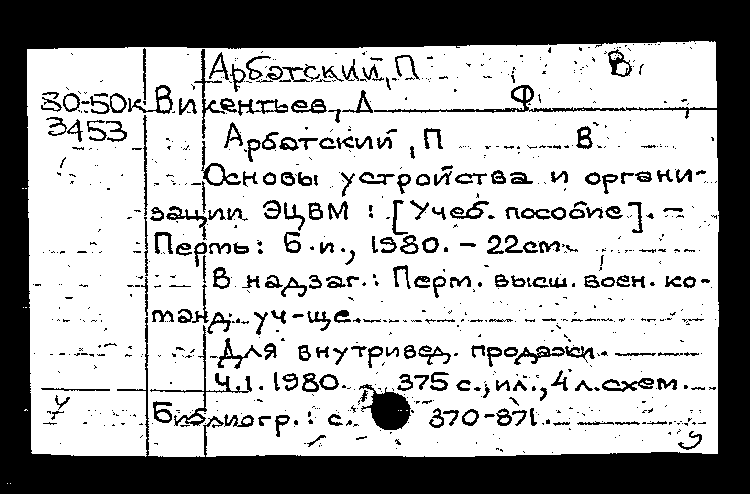 Арбатский, П В
80-50к Викентьев, Л Ф
3453
Арбатский, П В
Основы устройства и органи-
зации ЭЦВМ : [Учеб. пособие]. –
Пермь: Б.и., 1980. – 22см.
В надзаг.: Перм. высш. воен. ко-
манд. уч-ще.
Для внутривед. продажи.
Ч.1. 1980. 375 с., ил., 4 л.схем.
У Библиогр.: с. 370-371.